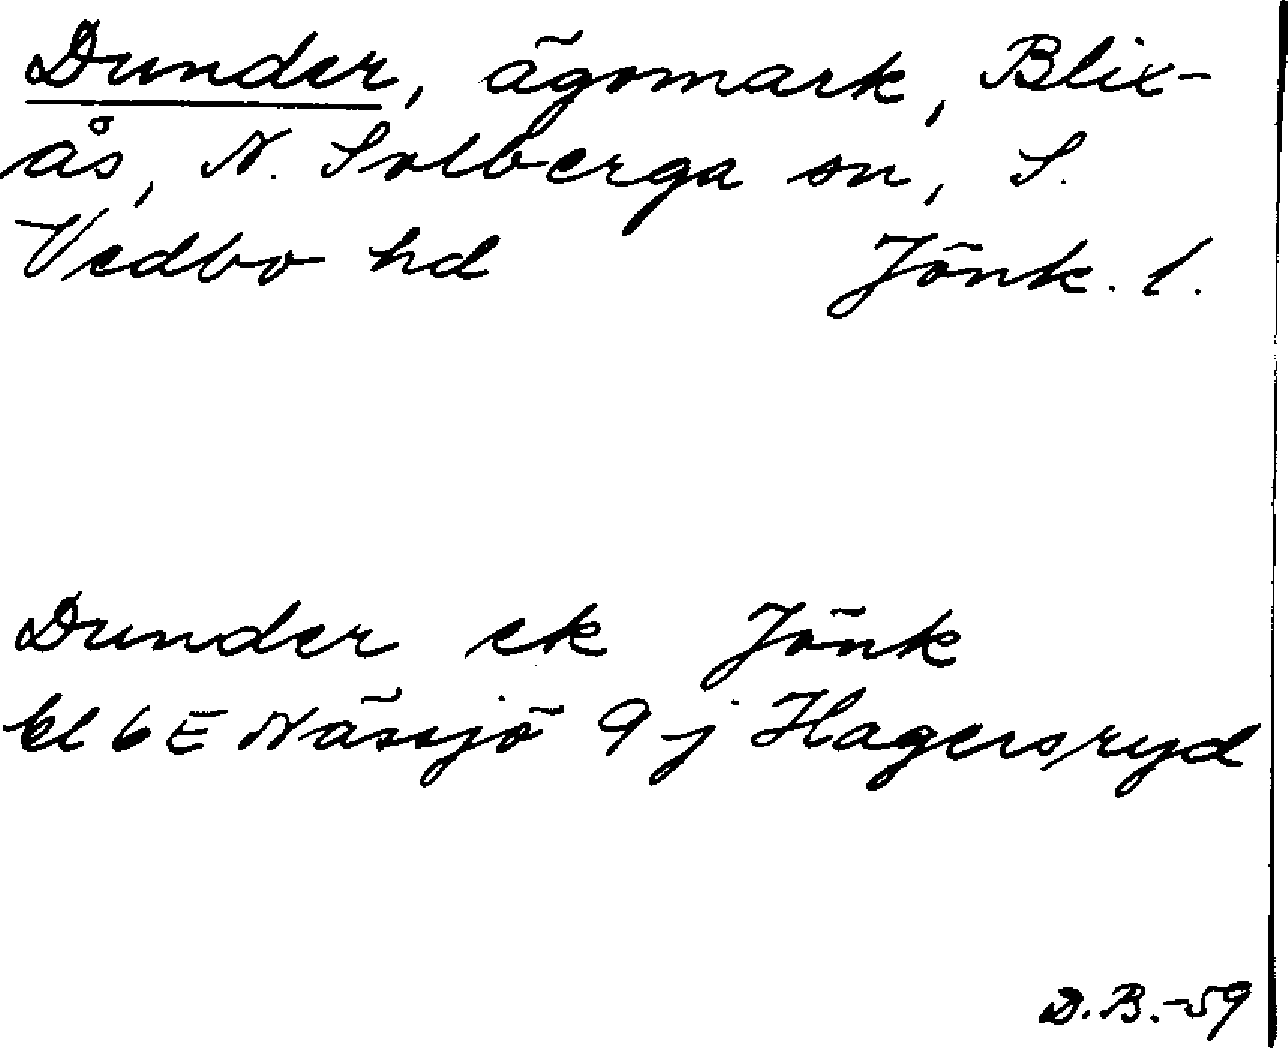 Dunder, ägomark, Blix-
ås, N. Solberga sn, S.
Vedbo hd Jönk. l.
Dunder ek Jönk
bl 6 E Nässjö 9 j Hagersryd
D.B.-59